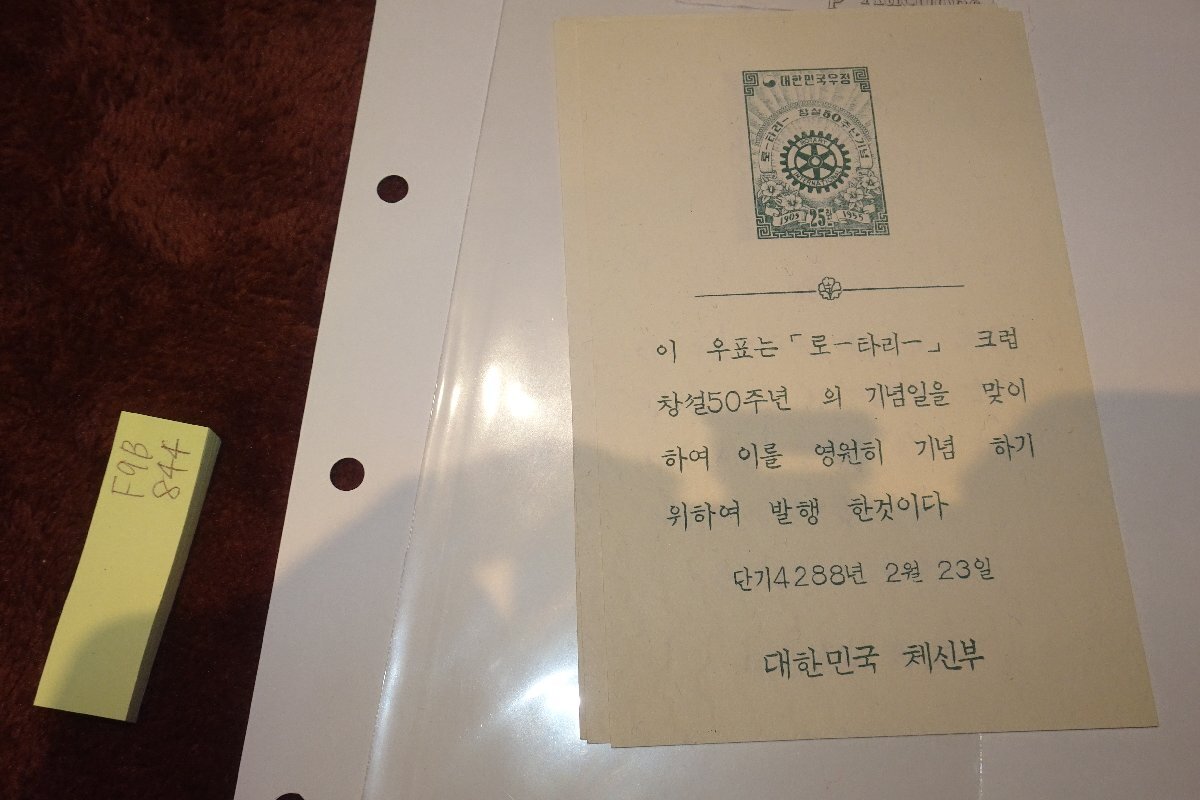 대한민국우정
로ー타리ー 창설50주년기념
ROTARY
INTERNATIONAL
1905 25환 1955
이 우표는「로ー타리ー」 크럽
창설50주년 의 기념일을 맞이
하여 이를 영원히 기념 하기
위하여 발행 한것이다
단기4288년 2월 23일
대한민국 체신부
F9B
844